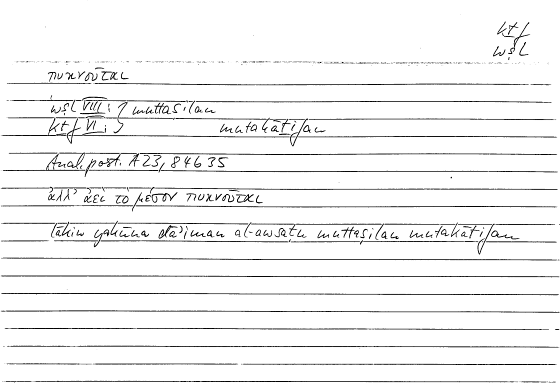 kṯf
wṣl
πυκνοῦται
wṣl VIII : } muttaṣilan
kṯf VI : } mutakāṯifan
Anal. post. A 23, 84b35
ἀλλ' ἀεὶ τὸ μέσον πυκνοῦται
lākin yakūnu dāʾiman al-awsaṭu muttaṣilan mutakāṯifan